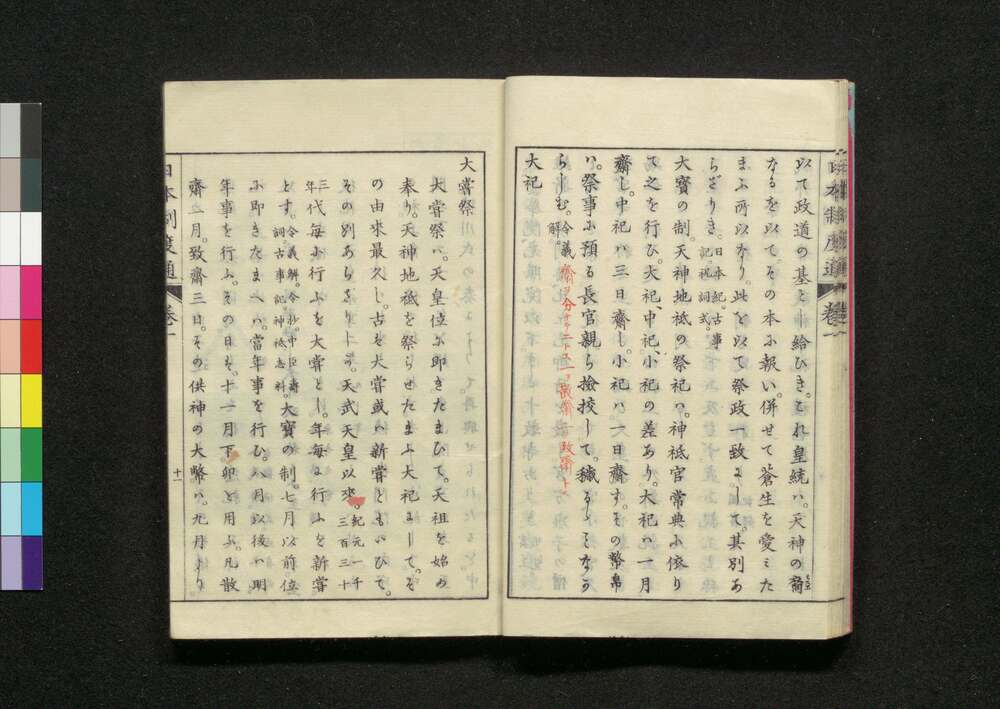 以て政道の基とし給ひき。これ皇統ハ。天神の裔
なるを以て。その本に報い。併せて蒼生を愛ミた
まふ所以なり。此を以て祭政一致にして。其別あ
らざりき。日本紀。古事記。祝詞式。
大寶の制。天神地祇の祭祀ハ。神祇官常典に依り
て之を行ひ。大祀、中祀、小祀の差あり。大祀ハ一月
齋し。中祀ハ三日齋し。小祀ハ。一日齋す。その幣帛
ハ。祭事に預る長官親ら撿挍して。穢るゝことなか
らしむ。令義解。
大祀
大嘗祭
大嘗祭ハ。天皇位に即きたまひて。天祖を始め
奉り。天神地祇を祭らせたまふ大祀にして。そ
の由來最久し。古を大嘗或ハ新嘗ともいひて。
その別あらざりしを。天武天皇以來。紀元一千三百三十
三年代毎に行ふを大嘗とし。年毎に行ふを新嘗
とす。令義解。令抄。中臣壽詞。古事記。神祇志料。大寶の制。七月以前位
に即きたまへハ。當年事を行ひ。八月以後ハ明
年事を行ふ。その日を。十一月下卯を用ふ。凡散
齋一月。致齋三日。その供神の大幣ハ。九月より。
日本制度通 卷一
十一